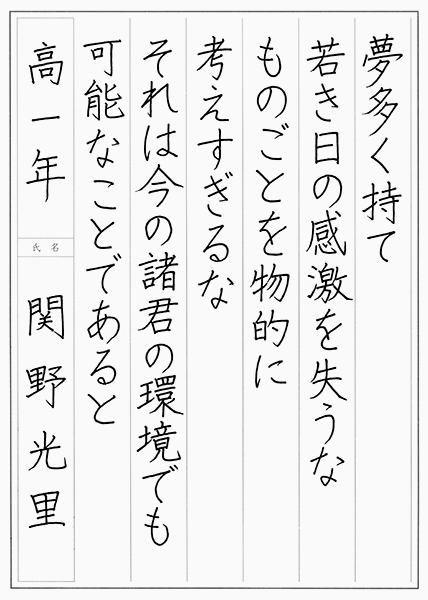 夢多く持て
若き日の感激を失うな
ものごとを物的に
考えすぎるな
それは今の諸君の環境でも
可能なことであると
高一年
氏名
関野光里